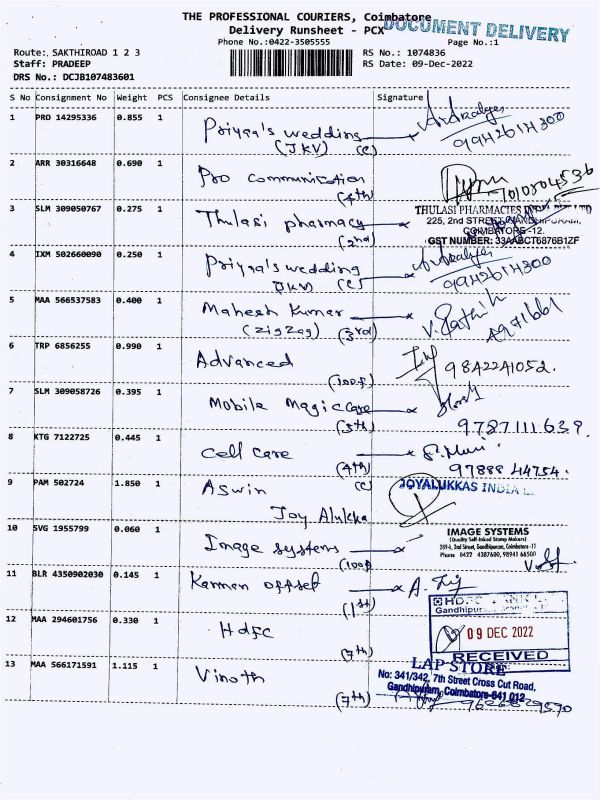 THE PROFESSIONAL COURIERS, Coimbatore
Delivery Runsheet - PCX
DOCUMENT DELIVERY
Phone No.:0422-3505555
Page No.:1
Route: SAKTHIROAD 1 2 3
RS No.: 1074836
Staff: PRADEEP
RS Date: 09-Dec-2022
DRS No.: DCJB107483601
S No Consignment No Weight PCS Consignee Details Signature
1 PRO 14295336 0.855 1 Priyaa's wedding
(JKV) (C)
9942614300
2 ARR 30316648 0.690 1 Pro communication
(4th)
7010804536
3 SLM 309050767 0.275 1 Thulasi pharmacy
(2nd)
THULASI PHARMACIES
225, 2nd STREET, GANDHIPURAM,
COIMBATORE-12.
GST NUMBER: 33AABCT6876B1ZF
4 IXM 502660090 0.250 1 Priyaa's wedding
JKV) (C)
9942614300
5 MAA 566537583 0.400 1 Mahesh Kumar
(zigzag) (3rd)
6 TRP 6856255 0.990 1 Advanced
(100f)
9842241052.
7 SLM 309058726 0.395 1 Mobile Magic care
(5th)
9787111639.
8 KTG 7122725 0.445 1 Cell care
(4th)
97888 44754.
9 PAM 502724 1.850 1 Aswin (C
Joy Alukka
JOYALUKKAS INDIA
10 SVG 1955799 0.060 1 Image systems
(100f
IMAGE SYSTEMS
(Quality Self-Inked Stamp Makers)
Phone 0422 4387600, 98941 66500
11 BLR 4350902030 0.145 1 Karman offset
(1st)
12 MAA 294601756 0.330 1 Hdfc
(7th)
HDFC
Gandhipuram
09 DEC 2022
RECEIVED
13 MAA 566171591 1.115 1 Vinoth
(7th)
LAP STORE
No: 341/342, 7th Street Cross Cut Road,
Gandhipuram, Coimbatore-641 012